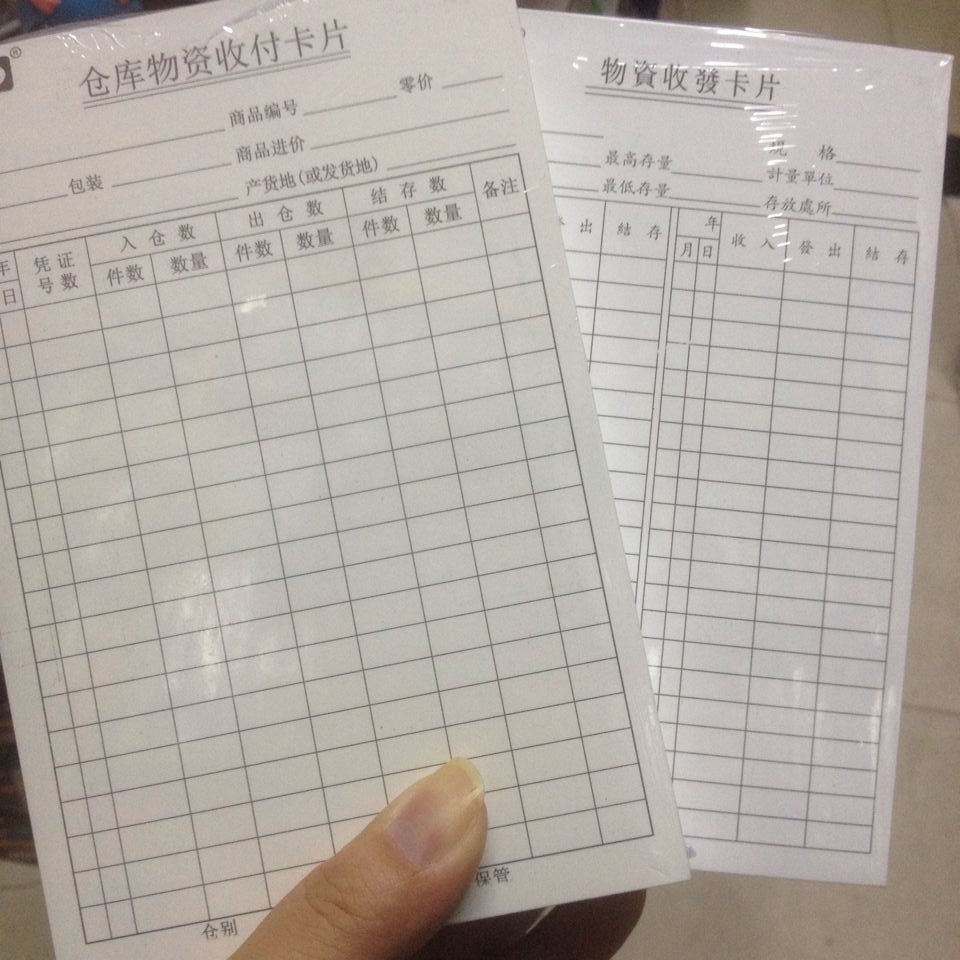 仓库物资收付卡片
商品编号 零价
商品进价
包装 产货地(或发货地)
年 凭证号数 入仓数 出仓数 结存数 备注
日 件数 数量 件数 数量 件数 数量
仓别 保管
物資收發卡片
規格
最高存量 計量單位
最低存量 存放處所
出 結存 年 收入 發出 結存
月 日